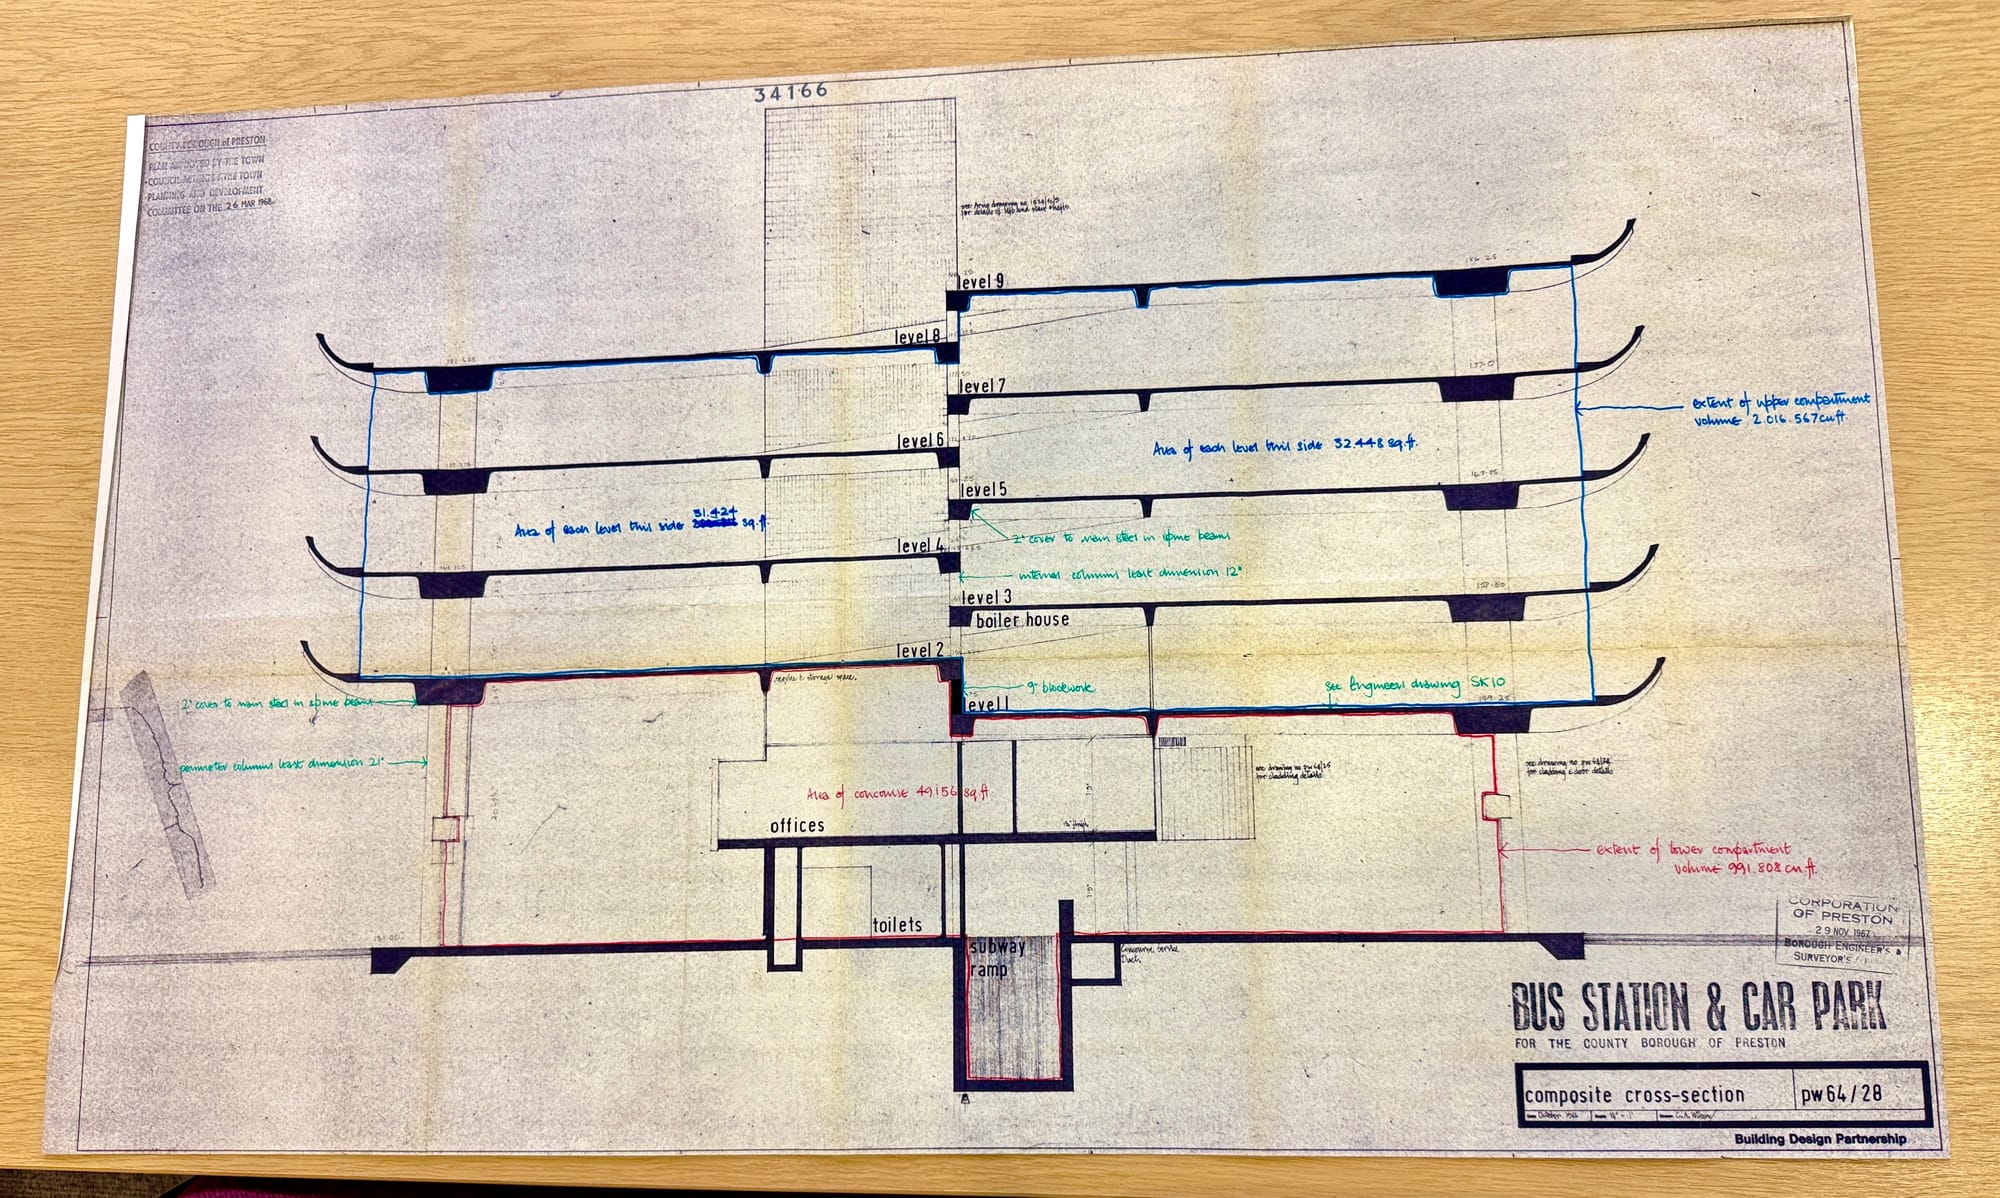 34166
COUNTY BOROUGH of PRESTON
PLAN APPROVED BY THE TOWN
COUNCIL ACTING BY THE TOWN
PLANNING AND DEVELOPMENT
COMMITTEE ON THE 26 MAR 1968
for details of lift and stair shafts
level 9
level 8
level 7
level 6
level 5
level 4
level 3
boiler house
level 2
level 1
extent of upper compartment
volume 2.016.567 cu ft.
Area of each level this side 32.448 sq.ft.
Area of each level this side 31.424 sq.ft.
2" cover to main steel in spine beams
internal columns least dimension 12"
9" blockwork
see Engineers drawing SK10
2" cover to main steel in spine beams
perimeter columns least dimension 21"
see drawing no pw 64/25
for cladding details
see drawing no pw 64/24
for cladding & door details
Area of concourse 49.156 sq.ft
offices
toilets
subway
ramp
Concourse Service
Duct.
extent of lower compartment
volume 991.808 cu.ft.
CORPORATION
OF PRESTON
29 NOV 1967
BOROUGH ENGINEER'S &
SURVEYOR'S
BUS STATION & CAR PARK
FOR THE COUNTY BOROUGH OF PRESTON
composite cross-section
pw 64/28
Building Design Partnership